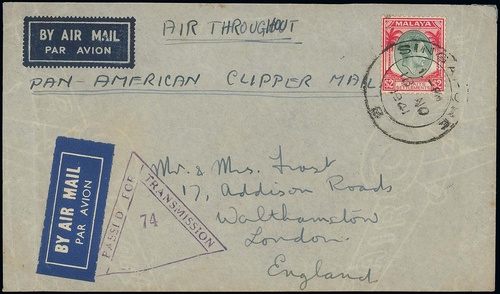 BY AIR MAIL
PAR AVION
AIR THROUGHOUT
MALAYA
SETTLEMENTS
SINGAPORE
1941
PAN-AMERICAN CLIPPER MAIL
BY AIR MAIL
PAR AVION
PASSED FOR
TRANSMISSION
74
Mr. & Mrs. Frost
17, Addison Roads
Walthamston
London.
England